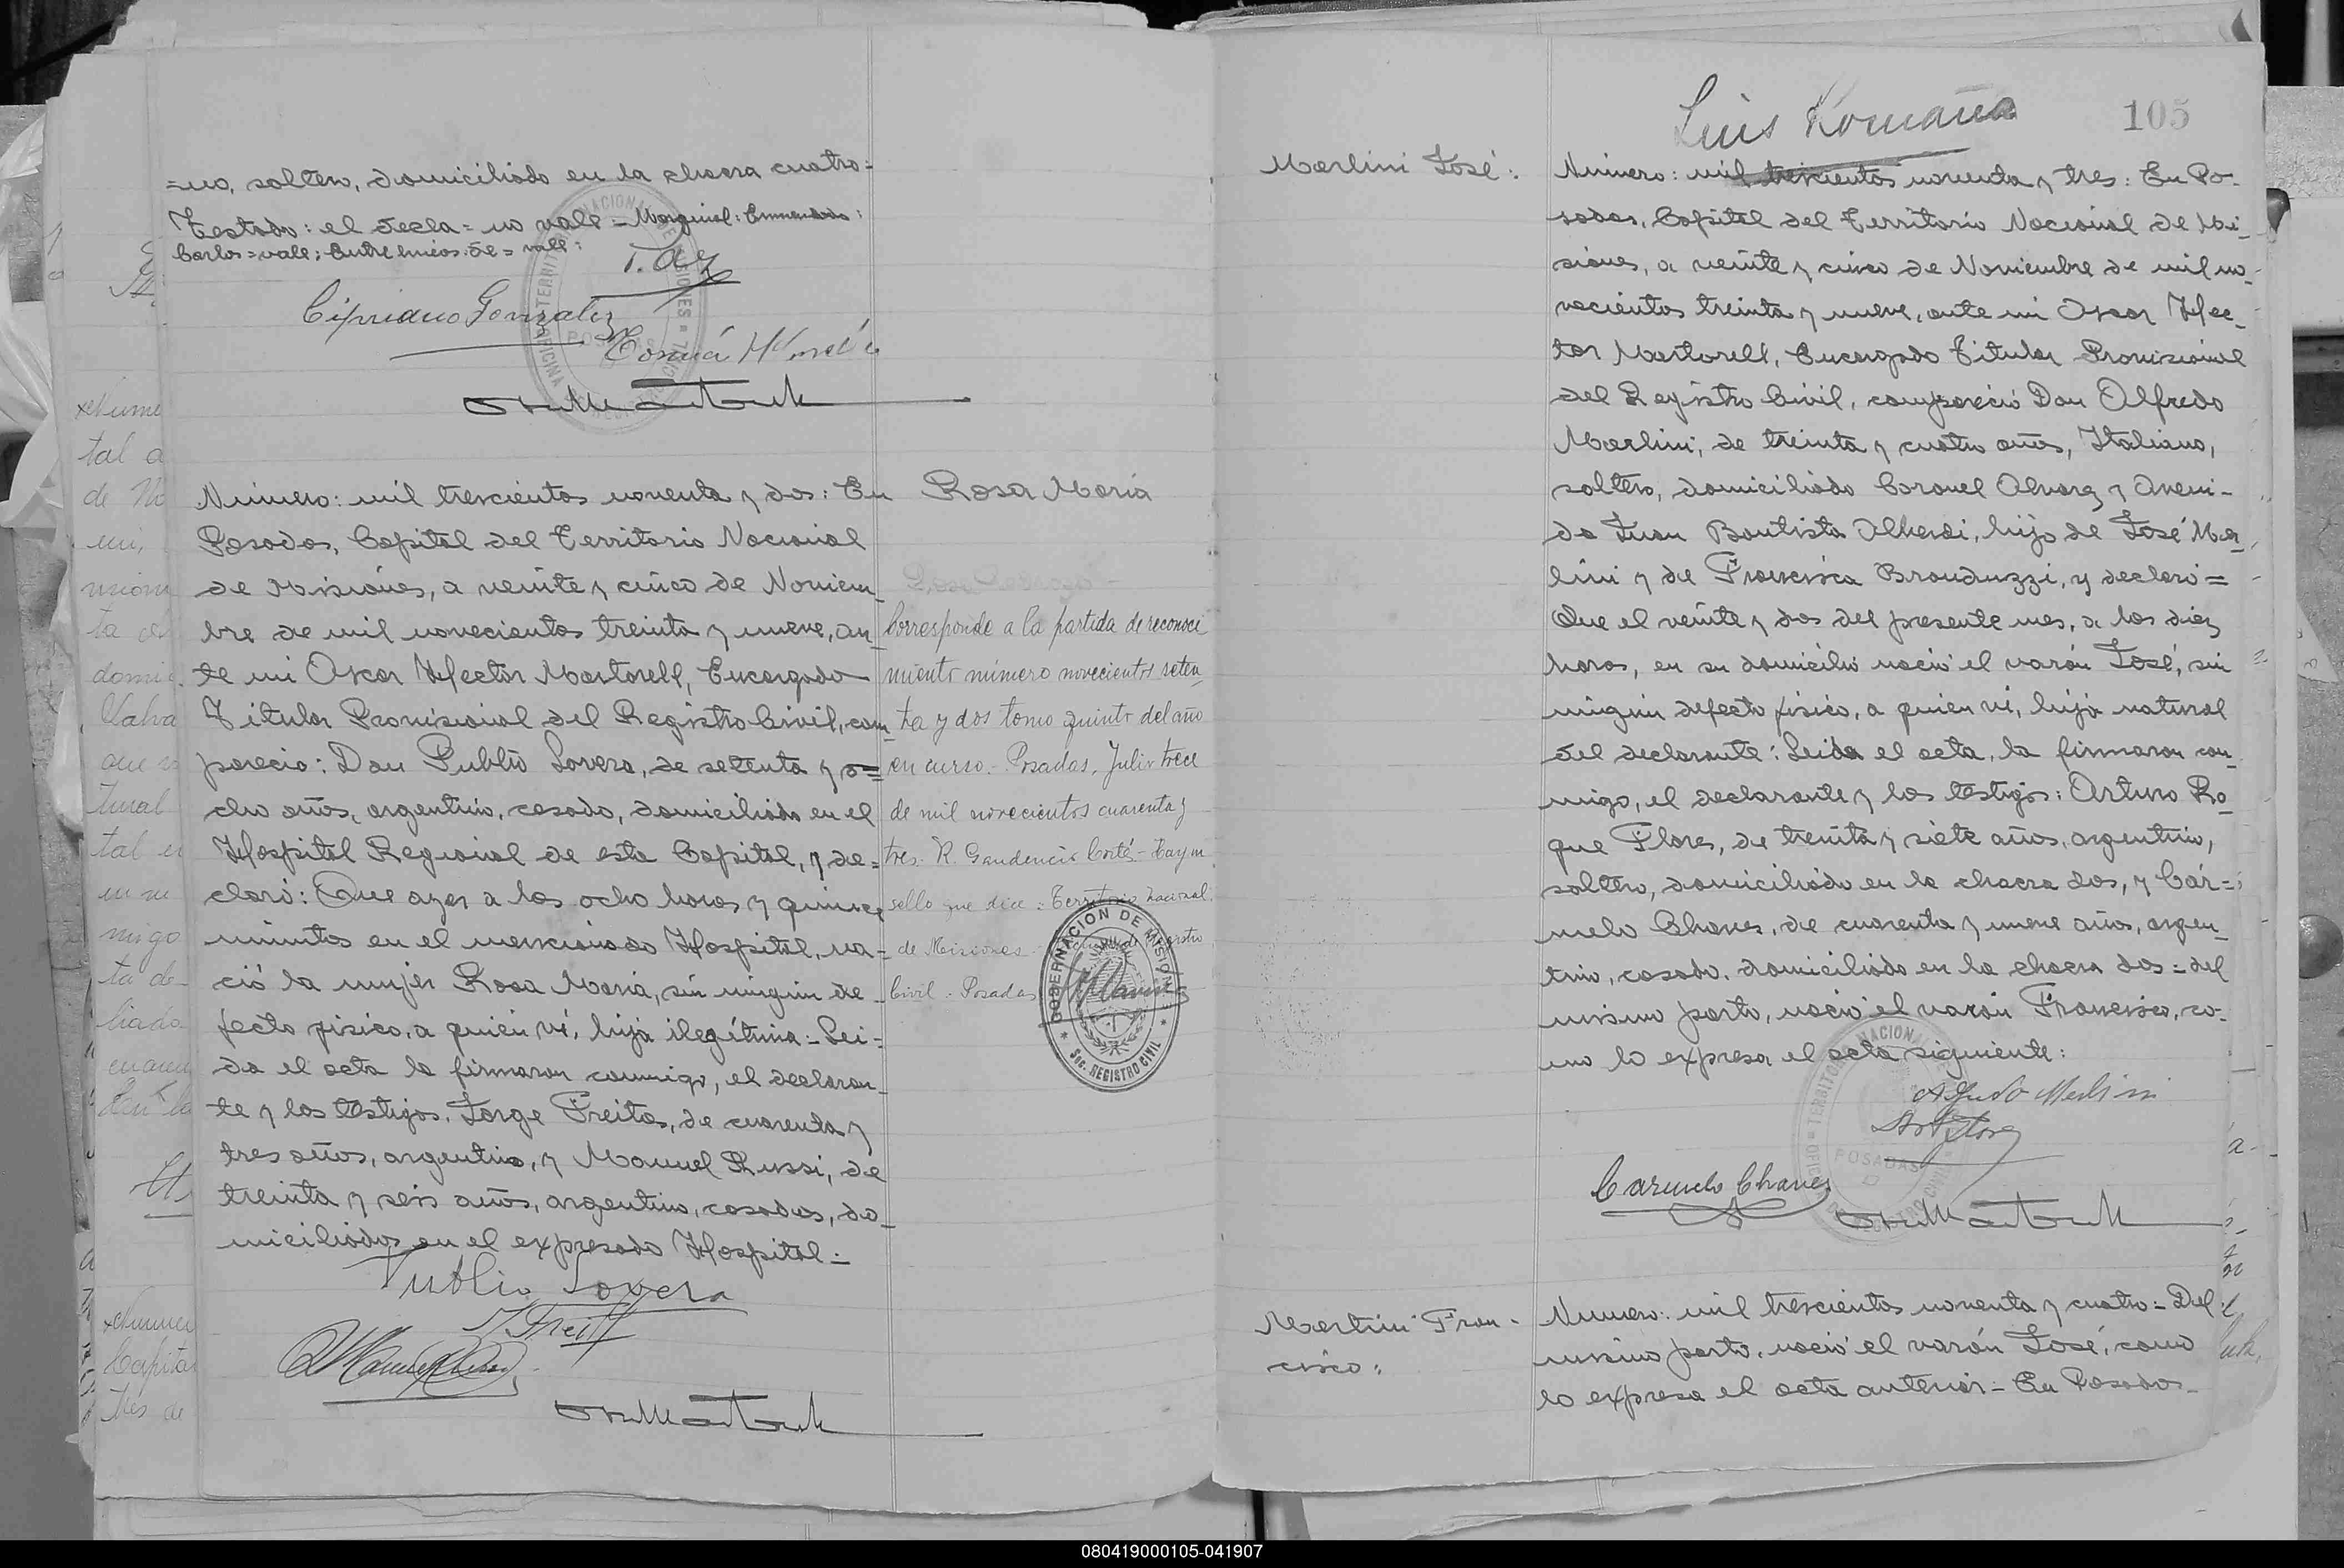 =no, soltero, domiciliado en la chacra cuatro=
Testado: el decla= no vale= Marginal: Enmendado:
Carlos=vale; Entre lineas: de= vale:
Cipriano Gonzalez
Número: mil trescientos noventa y dos: En
Posadas, Capital del Territorio Nacional
de Misiones, a veinte y cinco de Noviem_
bre de mil novecientos treinta y nueve, an_
te mi Oscar Hector Martorell, Encargado
Titular Provisional del Registro Civil, com_
pareció: Don Publio Lovera, de setenta y o=
cho años, argentino, casado, domiciliado en el
Hospital Regional de esta Capital, y de=
claró: Que ayer a las ocho horas y quince
minutos en el mencionado Hospital, na=
ció la mujer Rosa María, sin ningún de_
fecto físico, a quién ví, hija ilegítima:- Lei=
da el acta la firmaron conmigo, el declaran_
te y los testigos, Jorge Freita, de cuarenta y
tres años, argentino, y Manuel Russi, de
treinta y seis años, argentino, casados, do_
miciliados en el expresado Hospital:-
Publio Lovera
J. Freit
Rosa María
Corresponde a la partida de reconoci
miento número novecientos seten_
ta y dos tomo quinto del año
en curso.- Posadas, Julio trece
de mil novecientos cuarenta y
tres- R. Gaudencio Cortés- Hay un
sello que dice: Territorio Nacional
de Misiones- Oficina de Registro
Civil- Posadas
GOBERNACION DE MISIONES
Sec. REGISTRO CIVIL
Luis Romaña
105
Merlini José:
Número: mil trescientos noventa y tres: En Po-
sadas, Capital del Territorio Nacional de Mi_
siones, a veinte y cinco de Noviembre de mil no_
vecientos treinta y nueve, ante mi Oscar Hec_
tor Martorell, Encargado Titular Provisional
del Registro Civil, compareció Don Alfredo
Merlini, de treinta y cuatro años, Italiano,
soltero, domiciliado Coronel Alvarez y Aveni-
da Juan Bautista Alberdi, hijo de José Mer_
lini y de Francisca Branduzzi, y declaró=
Que el veinte y dos del presente mes, a las diez
horas, en su domicilio nació el varón José, sin
ningún defecto físico, a quien ví, hijo natural
del declarante: Leida el acta, la firmaron con_
migo, el declarante y los testigos: Arturo Ro_
que Flores, de treinta y siete años, argentino,
soltero, domiciliado en la chacra dos, y Cár=
melo Chaves, de cuarenta y nueve años, argen_
tino, casado, domiciliado en la chacra dos:= del
mismo parto, nació el varón Francisco, co-
mo lo expresa el acta siguiente:
Alfredo Merlini
Carmelo Chaves
POSADAS
Merlini Fran-
cisco:
Número: mil trescientos noventa y cuatro:= Del
mismo parto, nació el varón José, como
lo expresa el acta anterior:- En Posadas_
080419000105-041907